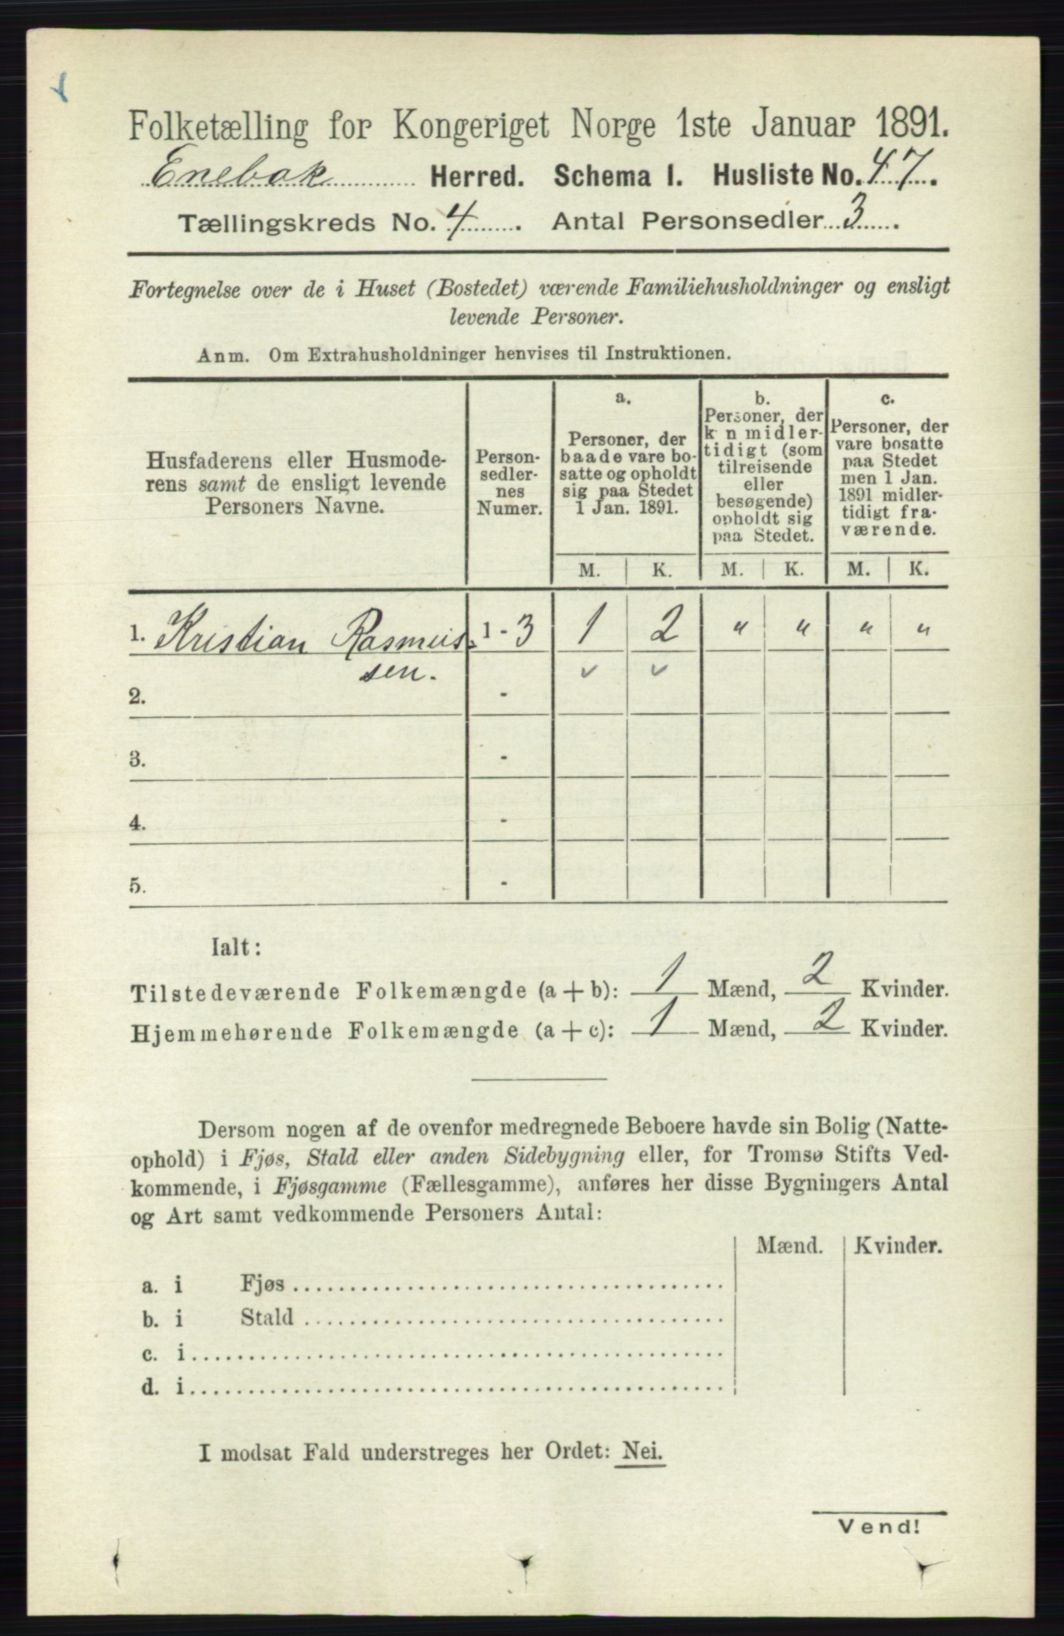 Folketælling for Kongeriget Norge 1ste Januar 1891.
Enebak Herred. Schema I. Husliste No. 47.
Tællingskreds No. 4. Antal Personsedler 3.
Fortegnelse over de i Huset (Bostedet) værende Familiehusholdninger og ensligt
levende Personer.
Anm. Om Extrahusholdninger henvises til Instruktionen.
Husfaderens eller Husmode-
rens samt de ensligt levende
Personers Navne.
Person-
sedler-
nes
Numer.
a.
Personer, der
baade vare bo-
satte og opholdt
sig paa Stedet
1 Jan. 1891.
b.
Personer, der
k n midler-
tidigt (som
tilreisende
eller
besøgende)
opholdt sig
paa Stedet.
c.
Personer, der
vare bosatte
paa Stedet
men 1 Jan.
1891 midler-
tidigt fra-
værende.
M. K. M. K. M. K.
1. Kristian Rasmus- 1-3 1 2 " " " "
sen. ✓ ✓
2. -
3. -
4. -
5. -
Ialt:
Tilstedeværende Folkemængde (a + b): 1 Mænd, 2 Kvinder.
Hjemmehørende Folkemængde (a + c): 1 Mænd, 2 Kvinder.
Dersom nogen af de ovenfor medregnede Beboere havde sin Bolig (Natte-
ophold) i Fjøs, Stald eller anden Sidebygning eller, for Tromsø Stifts Ved-
kommende, i Fjøsgamme (Fællesgamme), anføres her disse Bygningers Antal
og Art samt vedkommende Personers Antal:
Mænd. Kvinder.
a. i Fjøs
b. i Stald
c. i
d. i
I modsat Fald understreges her Ordet: Nei.
Vend!